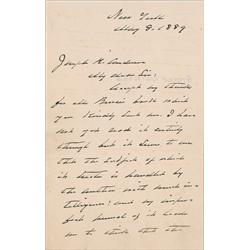 New York
May 8. 1889
Joseph K.
My dear Sir:
Accept my thanks
for the book which
you kindly sent me. I have
not yet read it entirely
through but it seems to me
that the subject of which
it treats is handled by
the author with much in-
telligence; and my imper-
fect perusal of it leads
me to think that the